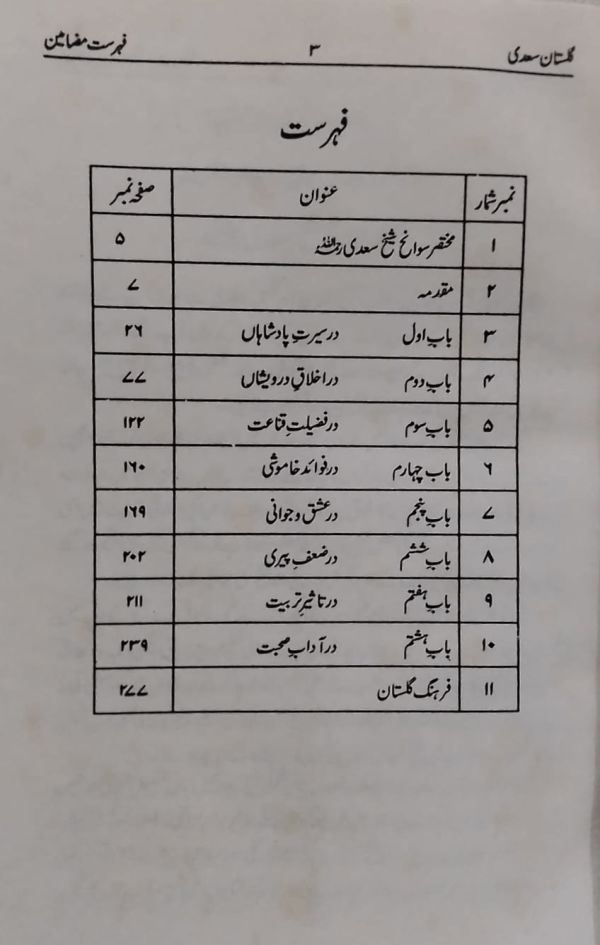 گلستان سعدی ۳ فہرست مضامین
فہرست
نمبر شمار عنوان صفحہ نمبر
۱ مختصر سوانح شیخ سعدی رحمہ اللہ ۵
۲ مقدمہ ۷
۳ بابِ اول در سیرتِ پادشاہاں ۲۶
۴ بابِ دوم در اخلاقِ درویشاں ۷۷
۵ بابِ سوم در فضیلتِ قناعت ۱۲۲
۶ باب چہارم در فوائد خاموشی ۱۶۰
۷ بابِ پنجم در عشق و جوانی ۱۶۹
۸ بابِ ششم در ضعفِ پیری ۲۰۲
۹ بابِ ہفتم در تاثیرِ تربیت ۲۱۱
۱۰ بابِ ہشتم در آدابِ صحبت ۲۳۹
۱۱ فرہنگ گلستان ۲۷۷